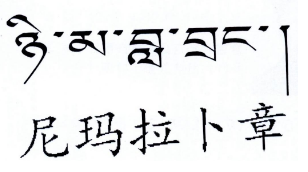 ཉི་མ་བླ་བྲང་།
尼玛拉卜章